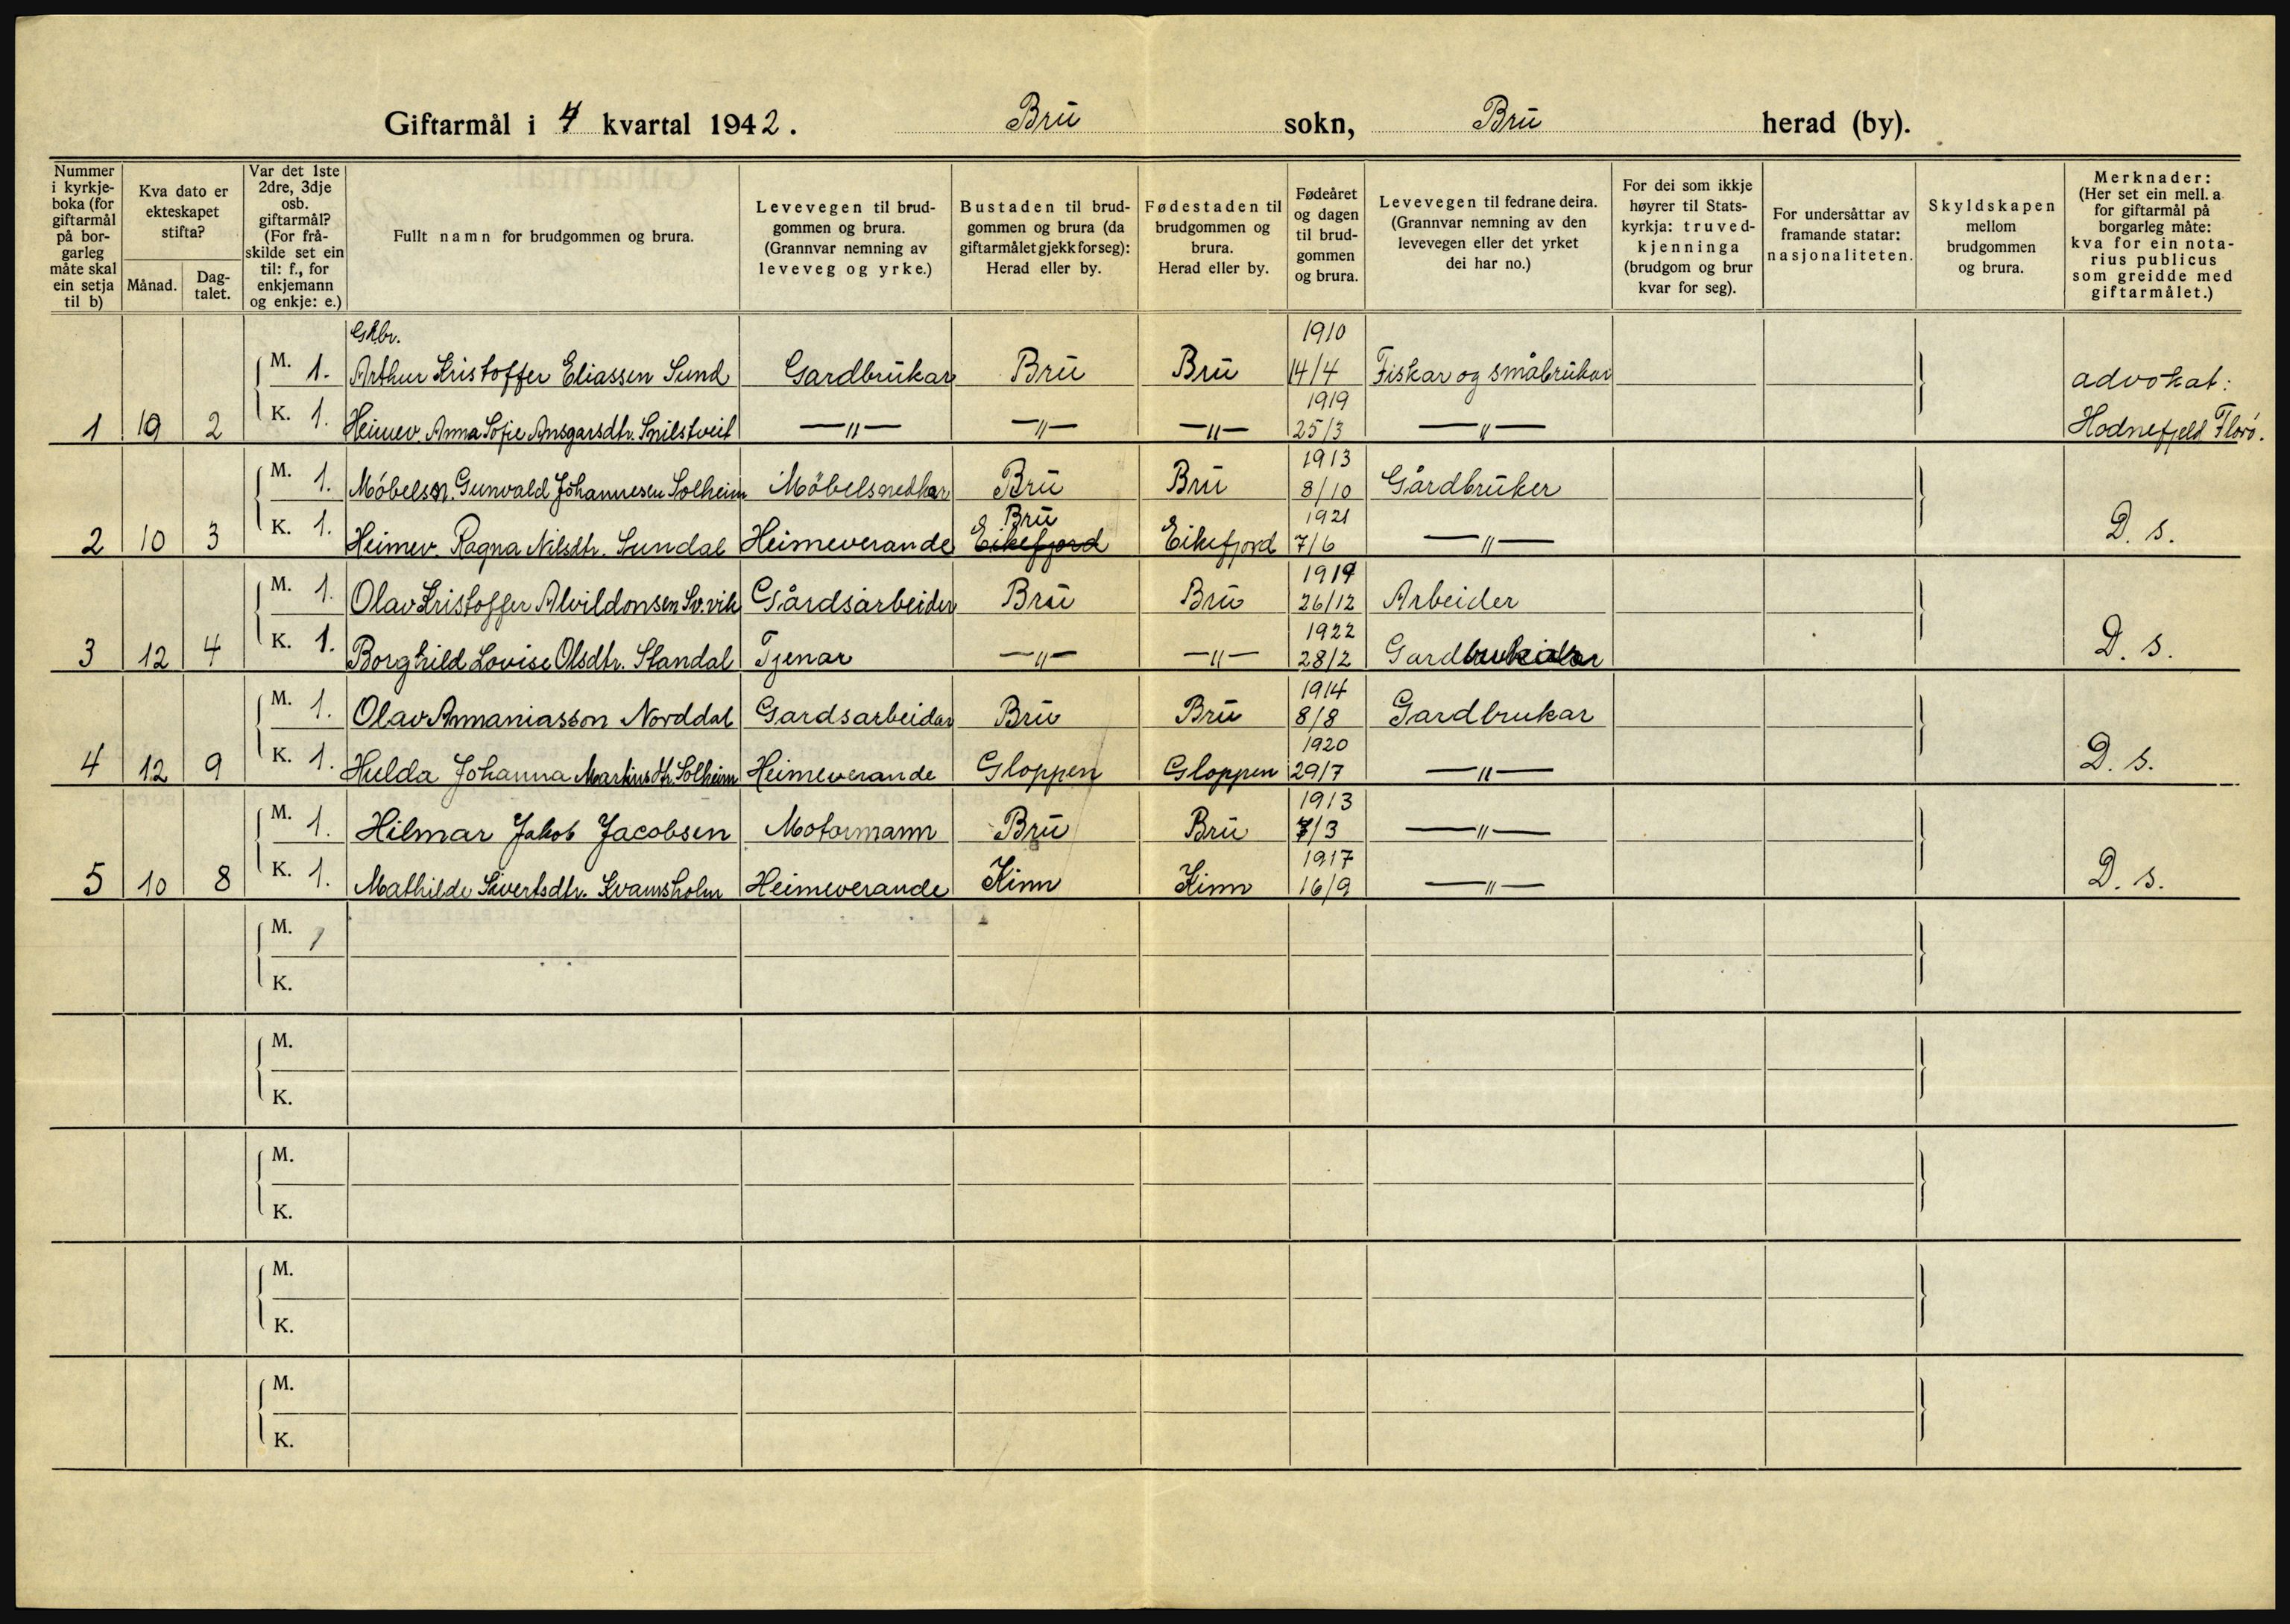 Giftarmål i 4 kvartal 1942. Bru sokn, Bru herad (by).
Nummer i kyrkje- boka (for giftarmål på bor- garleg måte skal ein setja til b)
Kva dato er ekteskapet stifta?
Månad.
Dag- talet.
Var det 1ste 2dre, 3dje osb. giftarmål? (For frå- skilde set ein til: f., for enkjemann og enkje: e.)
Fullt namn for brudgommen og brura.
Levevegen til brud- gommen og brura. (Grannvar nemning av leveveg og yrke.)
Bustaden til brud- gommen og brura (da giftarmålet gjekk for seg): Herad eller by.
Fødestaden til brudgommen og brura. Herad eller by.
Fødeåret og dagen til brud- gommen og brura.
Levevegen til fedrane deira. (Grannvar nemning av den levevegen eller det yrket dei har no.)
For dei som ikkje høyrer til Stats- kyrkja: truved- kjenninga (brudgom og brur kvar for seg).
For undersåttar av framande statar: nasjonaliteten.
Skyldskapen mellom brudgommen og brura.
Merknader: (Her set ein mell. a. for giftarmål på borgarleg måte: kva for ein nota- rius publicus som greidde med giftarmålet.)
Gkbr. 1910
M. 1. Arthur Kristoffer Eliassen Sund Gardbrukar Bru Bru 14/4 Fiskar og småbrukar advokat:
1919
1 10 2 K. 1. Heimev. Anna Sofie Ansgarsdtr. —"— —"— —"— 25/3 —"— Hodnefjeld Florø.
1913
M. 1. Møbelsn. Gunvald Johannesen Solheim Møbelsnedkar Bru Bru 8/10 Gårdbruker
Bru 1921
2 10 3 K. 1. Heimev. Ragna Nilsdtr. Sundal Heimeverande Eikefjord Eikefjord 7/6 —"— D. s.
1919
M. 1. Olav Kristoffer Alvildonsen Gårdsarbeider Bru Bru 26/12 Arbeider
1922
3 12 4 K. 1. Borghild Lovise Olsdtr. Standal Tjenar —"— —"— 28/2 Gardbrukar D. s.
1914
M. 1. Olav Annaniasson Norddal Gardsarbeidar Bru Bru 8/8 Gardbrukar
1920
4 12 9 K. 1. Hulda Johanna Martinsdtr. Solheim Heimeverande Gloppen Gloppen 29/7 —"— D. s.
1913
M. 1. Hilmar Jakob Jacobsen Motormann Bru Bru 7/3 —"—
1917
5 10 8 K. 1. Mathilde Sivertsdtr. Kvamsholm Heimeverande Kinn Kinn 16/9 —"— D. s.
M. 1
K.
M.
K.
M.
K.
M.
K.
M.
K.